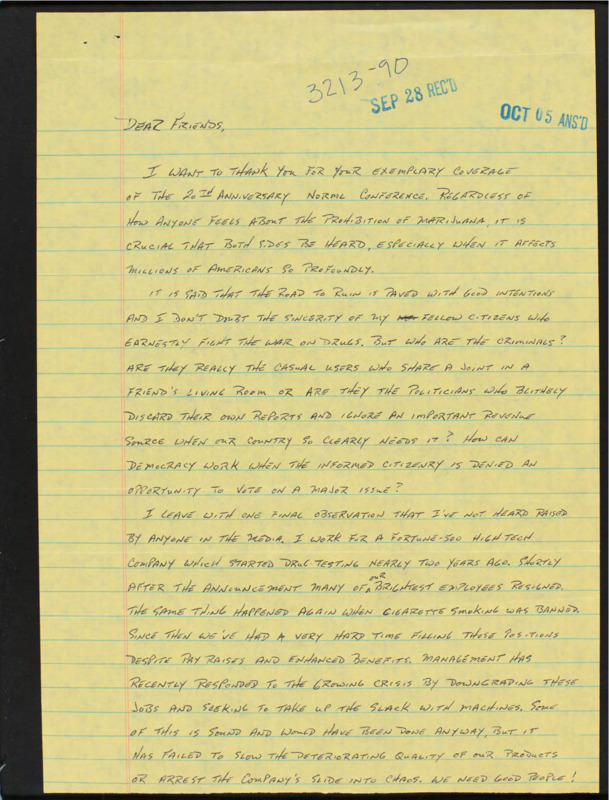 3213-90
SEP 28 REC'D
OCT 05 ANS'D
DEAR FRIENDS,
I WANT TO THANK YOU FOR YOUR EXEMPLARY COVERAGE
OF THE 20TH ANNIVERSARY NORML CONFERENCE. REGARDLESS OF
HOW ANYONE FEELS ABOUT THE PROHIBITION OF MARIJUANA, IT IS
CRUCIAL THAT BOTH SIDES BE HEARD, ESPECIALLY WHEN IT AFFECTS
MILLIONS OF AMERICANS SO PROFOUNDLY.
IT IS SAID THAT THE ROAD TO RUIN IS PAVED WITH GOOD INTENTIONS
AND I DON'T DOUBT THE SINCERITY OF MY FELLOW CITIZENS WHO
EARNESTLY FIGHT THE WAR ON DRUGS. BUT WHO ARE THE CRIMINALS?
ARE THEY REALLY THE CASUAL USERS WHO SHARE A JOINT IN A
FRIEND'S LIVING ROOM OR ARE THEY THE POLITICIANS WHO BLITHELY
DISCARD THEIR OWN REPORTS AND IGNORE AN IMPORTANT REVENUE
SOURCE WHEN OUR COUNTRY SO CLEARLY NEEDS IT? HOW CAN
DEMOCRACY WORK WHEN THE INFORMED CITIZENRY IS DENIED AN
OPPORTUNITY TO VOTE ON A MAJOR ISSUE?
I LEAVE WITH ONE FINAL OBSERVATION THAT I'VE NOT HEARD RAISED
BY ANYONE IN THE MEDIA. I WORK FOR A FORTUNE-500 HIGH TECH
COMPANY WHICH STARTED DRUG-TESTING NEARLY TWO YEARS AGO. SHORTLY
AFTER THE ANNOUNCEMENT MANY OF OUR BRIGHTEST EMPLOYEES RESIGNED.
THE SAME THING HAPPENED AGAIN WHEN CIGARETTE SMOKING WAS BANNED.
SINCE THEN WE'VE HAD A VERY HARD TIME FILLING THOSE POSITIONS
DESPITE PAY RAISES AND ENHANCED BENEFITS. MANAGEMENT HAS
RECENTLY RESPONDED TO THE GROWING CRISIS BY DOWNGRADING THESE
JOBS AND SEEKING TO TAKE UP THE SLACK WITH MACHINES. SOME
OF THIS IS SOUND AND WOULD HAVE BEEN DONE ANYWAY, BUT IT
HAS FAILED TO SLOW THE DETERIORATING QUALITY OF OUR PRODUCTS
OR ARREST THE COMPANY'S SLIDE INTO CHAOS. WE NEED GOOD PEOPLE!